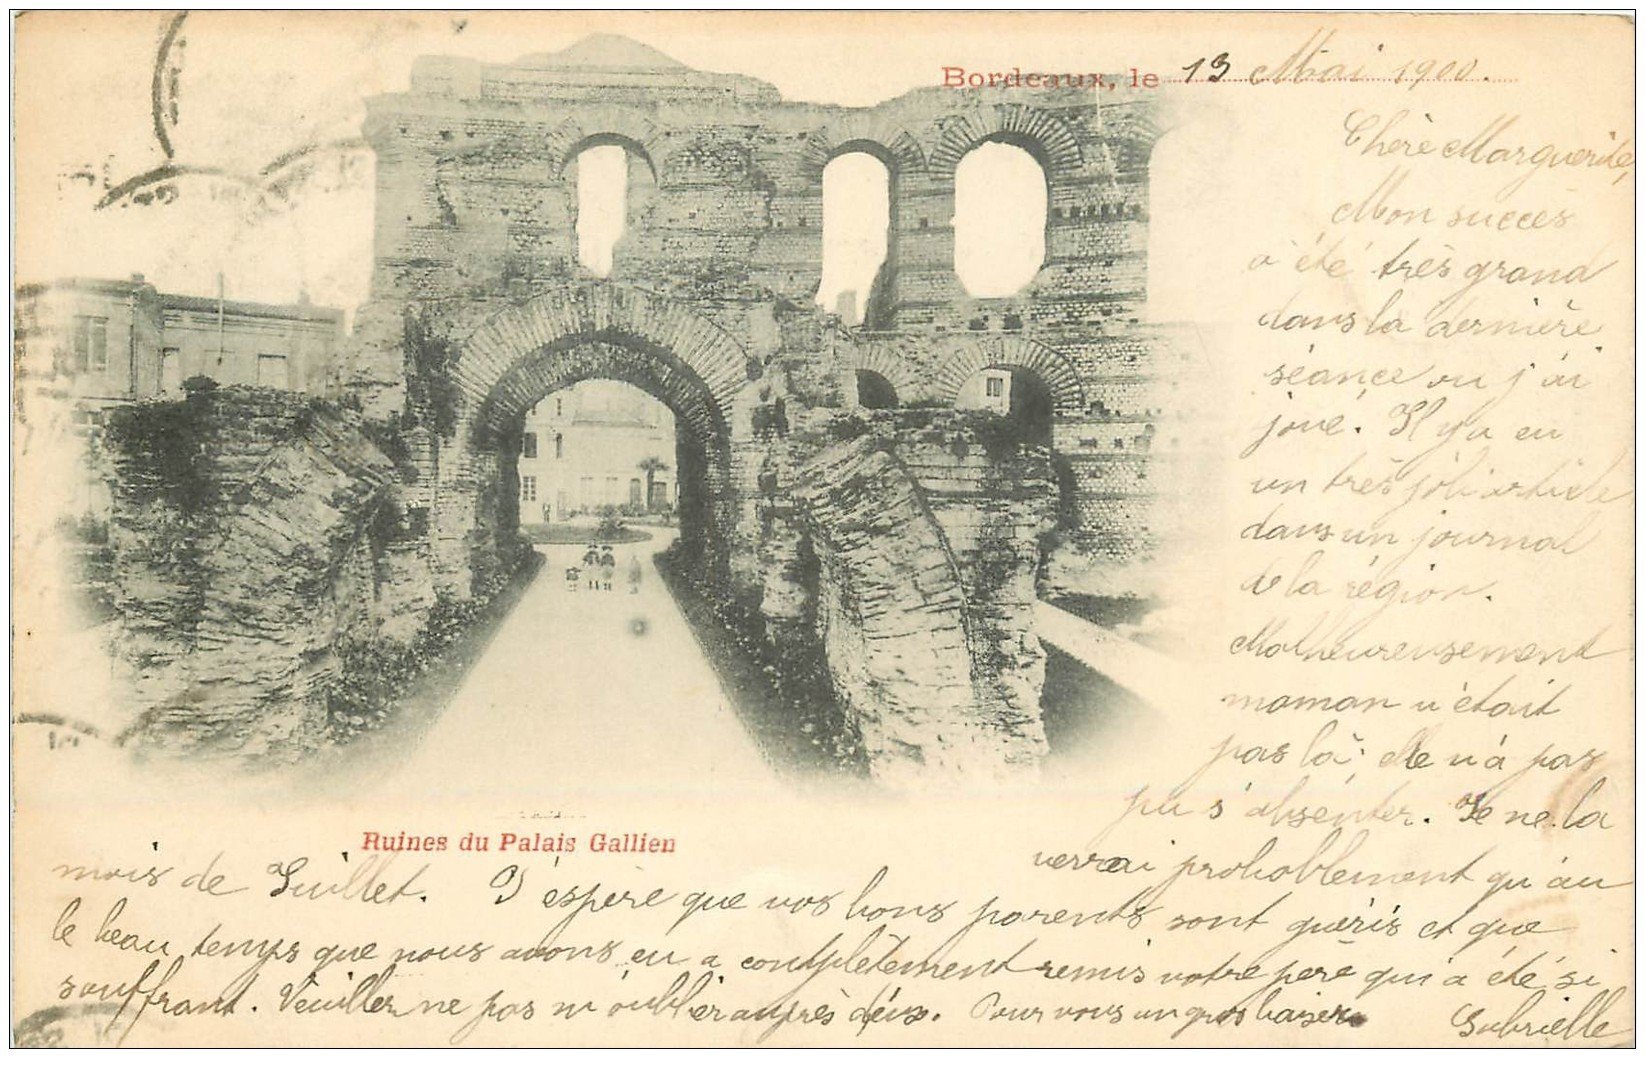 Bordeaux, le 13 Mai 1900.
Chère Marguerite,
Mon succès
a été très grand
dans la dernière
séance ou j'ai
joué. Il y a eu
un très joli article
dans un journal
de la région.
Malheureusement
maman n'était
pas là; elle n'a pas
pu s'absenter. Je ne la
verrai probablement qu'au
Ruines du Palais Gallien
mois de Juillet. J'espère que vos bons parents sont guéris et que
le beau temps que nous avons eu a complètement remis votre père qui a été si
souffrant. Veuillez ne pas m'oublier auprès d'eux. Pour vous un gros baiser
Gabrielle